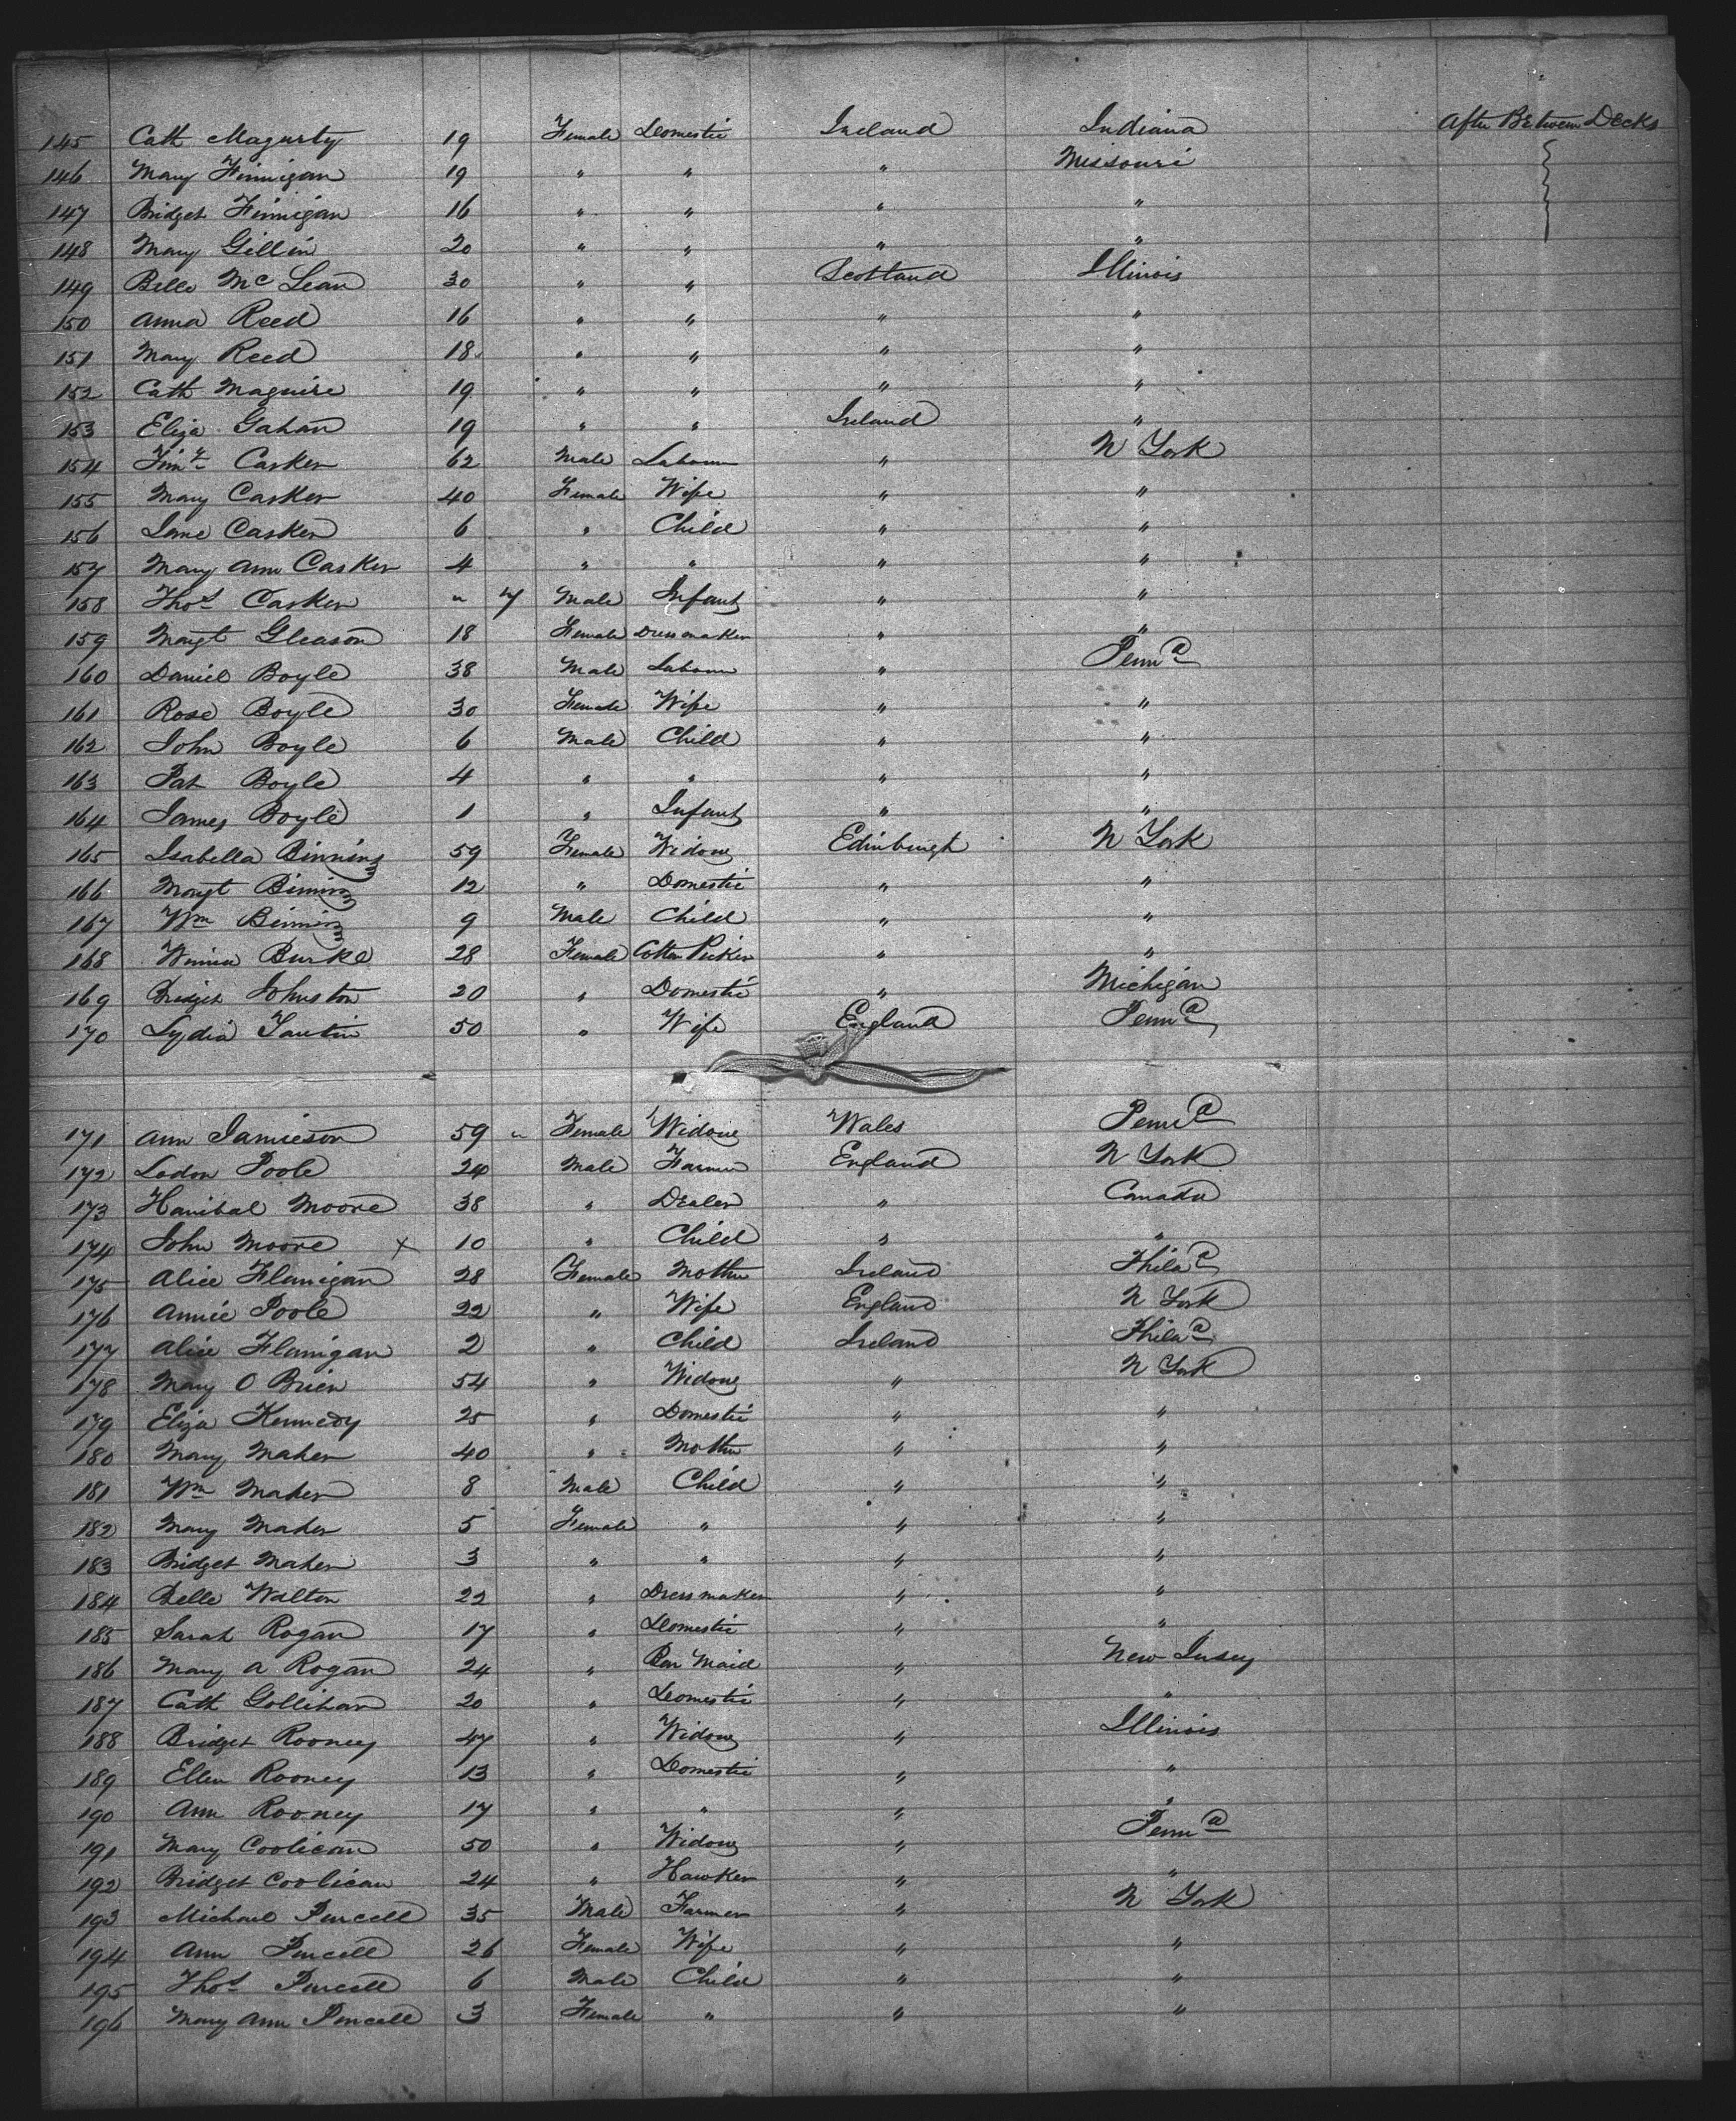 145 Cath Magurty 19 Female Domestic Ireland Indiana After Between Decks
146 Mary Finnigan 19 " " " Missouri
147 Bridget Finnigan 16 " " " "
148 Mary Gillin 20 " " " "
149 Belle Mc Lean 30 " " Scotland Illinois
150 Anna Reed 16 " " " "
151 Mary Reed 18 " " " "
152 Cath Maguire 19 " " " "
153 Eliza Gahan 19 " " Ireland "
154 Timy Casker 62 Male Labourer " N York
155 Mary Casker 40 Female Wife " "
156 Jane Casker 6 " Child " "
157 Mary Ann Casker 4 " " " "
158 Thos Casker " 7 Male Infant " "
159 Margt Gleason 18 Female Dressmaker " "
160 Daniel Boyle 38 Male Labourer " Penna
161 Rose Boyle 30 Female Wife " "
162 John Boyle 6 Male Child " "
163 Pat Boyle 4 " " " "
164 James Boyle 1 " Infant " "
165 Isabella Binning 59 Female Widow Edinburgh N York
166 Margt Binning 12 " Domestic " "
167 Wm Binning 9 Male Child " "
168 Winnia Burke 28 Female Cotton Picker " "
169 Bridget Johnston 20 " Domestic " Michigan
170 Lydia 50 " Wife England Penna
171 Ann Jamieson 59 " Female Widow Wales Penna
172 Lodon Poole 24 Male Farmer England N York
173 Hanibal Moore 38 " Dealer " Canada
174 John Moore X 10 " Child " "
175 Alice Flanigan 28 Female Mother Ireland Phila
176 Annie Poole 22 " Wife England N York
177 Alice Flanigan 2 " Child Ireland Phila
178 Mary O Brien 54 " Widow " N York
179 Eliza Kennedy 25 " Domestic " "
180 Mary Maher 40 " Mother " "
181 Wm Maher 8 Male Child " "
182 Mary Maher 5 Female " " "
183 Bridget Maher 3 " " " "
184 Belle Walton 22 " Dressmaker " "
185 Sarah Rogan 17 " Domestic " "
186 Mary A Rogan 24 " Bar Maid " New Jersey
187 Cath Gollihan 20 " Domestic " "
188 Bridget Rooney 47 " Widow " Illinois
189 Ellen Rooney 13 " Domestic " "
190 Ann Rooney 17 " " " "
191 Mary Coolican 50 " Widow " Penna
192 Bridget Coolican 24 " Hawker " "
193 Michael Purcell 35 Male Farmer " N York
194 Ann Purcell 26 Female Wife " "
195 Thos Purcell 6 Male Child " "
196 Mary Ann Purcell 3 Female " " "